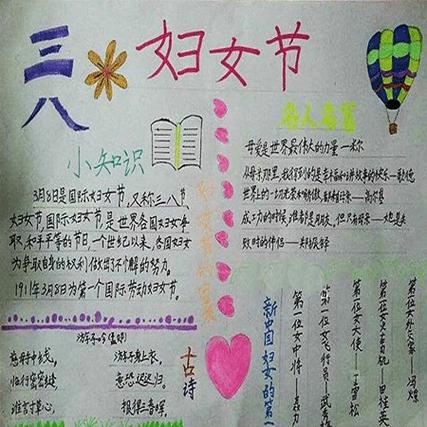 三八
妇女节
小知识
3月8日是国际妇女节,又称三八节,
妇女节,国际妇女节,是世界各国妇女争
取和平平等的节日。一个世纪以来,各国妇女
为争取自身的权利做出了不懈的努力。
1911年3月8日为第一个国际劳动妇女节。
名人名言
母爱是世界最伟大的力量—米尔
世界上的一切光荣和骄傲,都来自母亲——高尔基
成功的时候,谁都是朋友。但只有母亲——她是失
败时的伴侣——郑振铎
游子吟
古诗
慈母手中线,
游子身上衣,
临行密密缝,
意恐迟迟归。
谁言寸草心,
报得三春晖。
新中国妇女的第一
第一位女中将——聂力
第一位女飞行员——武秀梅
第一位女大使——丁雪松
第一位女火车司机——田桂英
第一位女外交家——冯燎